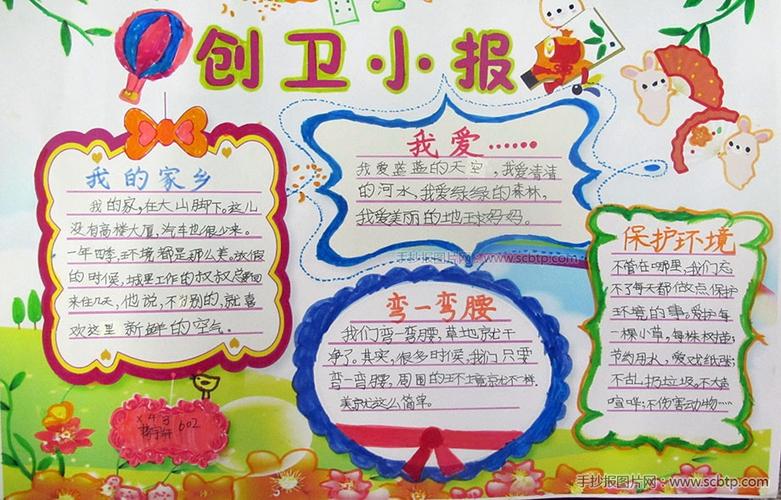 创卫小报
我的家乡
我的家,在大山脚下。这儿
没有高楼大厦,汽车也很少来。
一年四季环境都是那么美。放假
的时候,城里工作的叔叔总要回
来住几天,他说,不为别的,就喜
欢这里新鲜的空气。
我爱……
我爱蓝蓝的天空,我爱清清
的河水,我爱绿绿的森林,
我爱美丽的地球妈妈。
手抄报图片网:www.scbtp.com
弯一弯腰
我们弯一弯腰,草地就干
净了。其实,很多时候,我们只要
弯一弯腰,周围的环境就不一样。
美就这么简单。
保护环境
不管在哪里,我们忘
不了每天都做点保护
环境的事。爱护每
一棵小草,每株树苗;
节约用水,爱惜纸张;
不乱扔垃圾。不大声
喧哗;不伤害动物……
602
手抄报图片网:www.scbtp.com